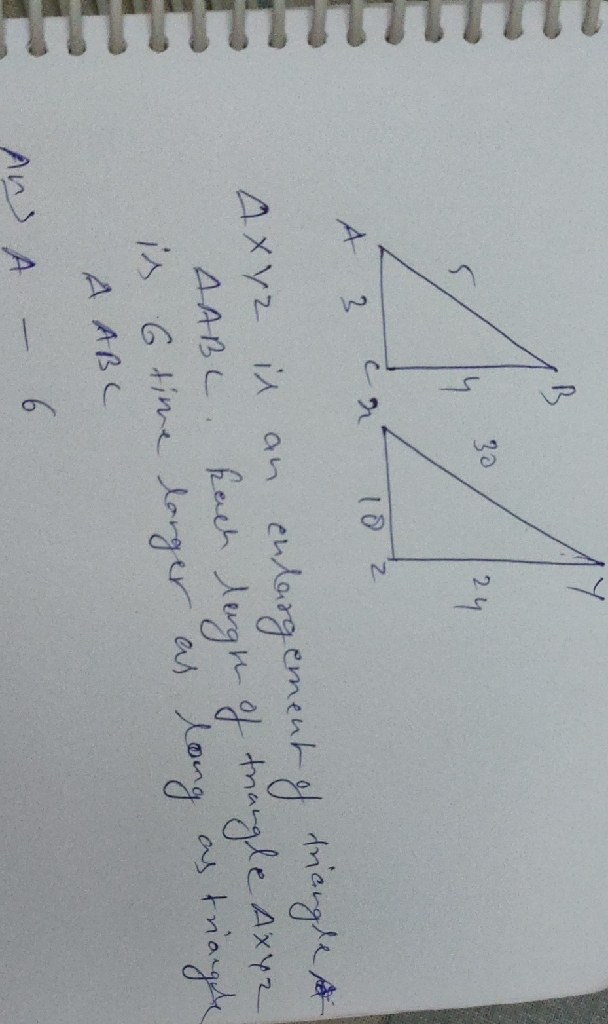 A 3 C
5
4
B
x 18 z
30
24
Y
Δ XYZ is an enlargement of triangle
Δ ABC. Each lengh of triangle Δ XYZ
is 6 time larger as long as triangle
Δ ABC
Ans A - 6